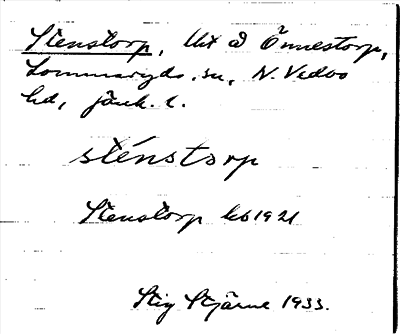 Stenstorp, lht å Önnestorp,
Lommaryds sn, N. Vedbo
hd, Jönk. l.
sténstorp
Stenstorp kb 1921
Stig Stjärne 1933.